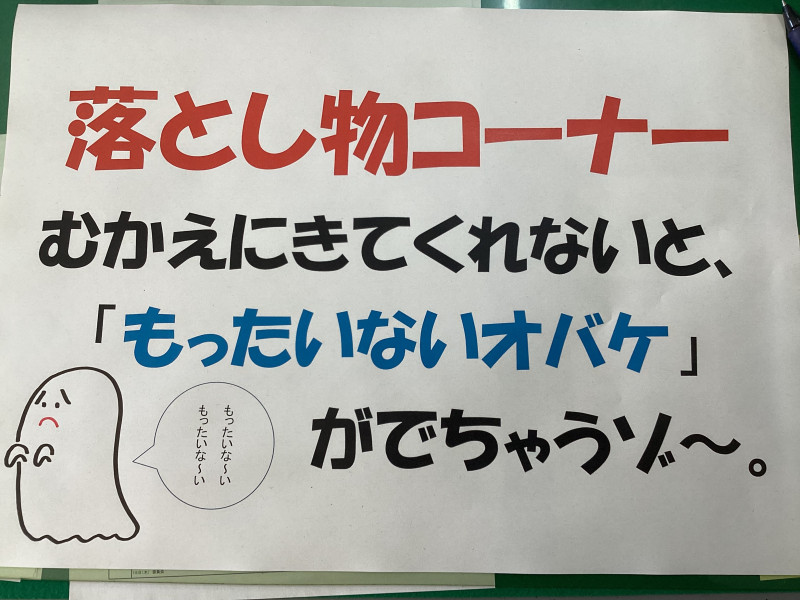 落とし物コーナー
むかえにきてくれないと、
「もったいないオバケ」
がでちゃうゾ～。
もったいな～い
もったいな～い